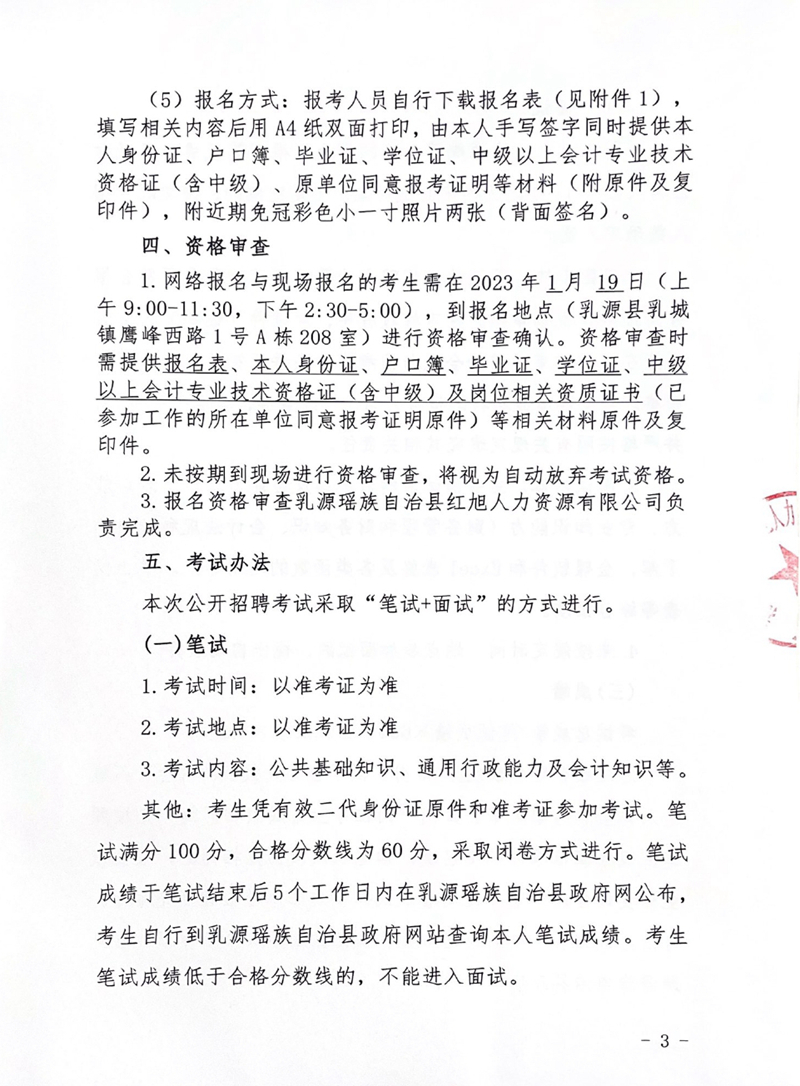 （5）报名方式：报考人员自行下载报名表（见附件1），
填写相关内容后用A4纸双面打印，由本人手写签字同时提供本
人身份证、户口簿、毕业证、学位证、中级以上会计专业技术
资格证（含中级）、原单位同意报考证明等材料（附原件及复
印件），附近期免冠彩色小一寸照片两张（背面签名）。
四、资格审查
1.网络报名与现场报名的考生需在2023年1月19日（上
午9:00-11:30，下午2:30-5:00），到报名地点（乳源县乳城
镇鹰峰西路1号A栋208室）进行资格审查确认。资格审查时
需提供报名表、本人身份证、户口簿、毕业证、学位证、中级
以上会计专业技术资格证（含中级）及岗位相关资质证书（已
参加工作的所在单位同意报考证明原件）等相关材料原件及复
印件。
2.未按期到现场进行资格审查，将视为自动放弃考试资格。
3.报名资格审查乳源瑶族自治县红旭人力资源有限公司负
责完成。
五、考试办法
本次公开招聘考试采取“笔试+面试”的方式进行。
(一)笔试
1.考试时间：以准考证为准
2.考试地点：以准考证为准
3.考试内容：公共基础知识、通用行政能力及会计知识等。
其他：考生凭有效二代身份证原件和准考证参加考试。笔
试满分100分，合格分数线为60分，采取闭卷方式进行。笔试
成绩于笔试结束后5个工作日内在乳源瑶族自治县政府网公布，
考生自行到乳源瑶族自治县政府网站查询本人笔试成绩。考生
笔试成绩低于合格分数线的，不能进入面试。
- 3 -